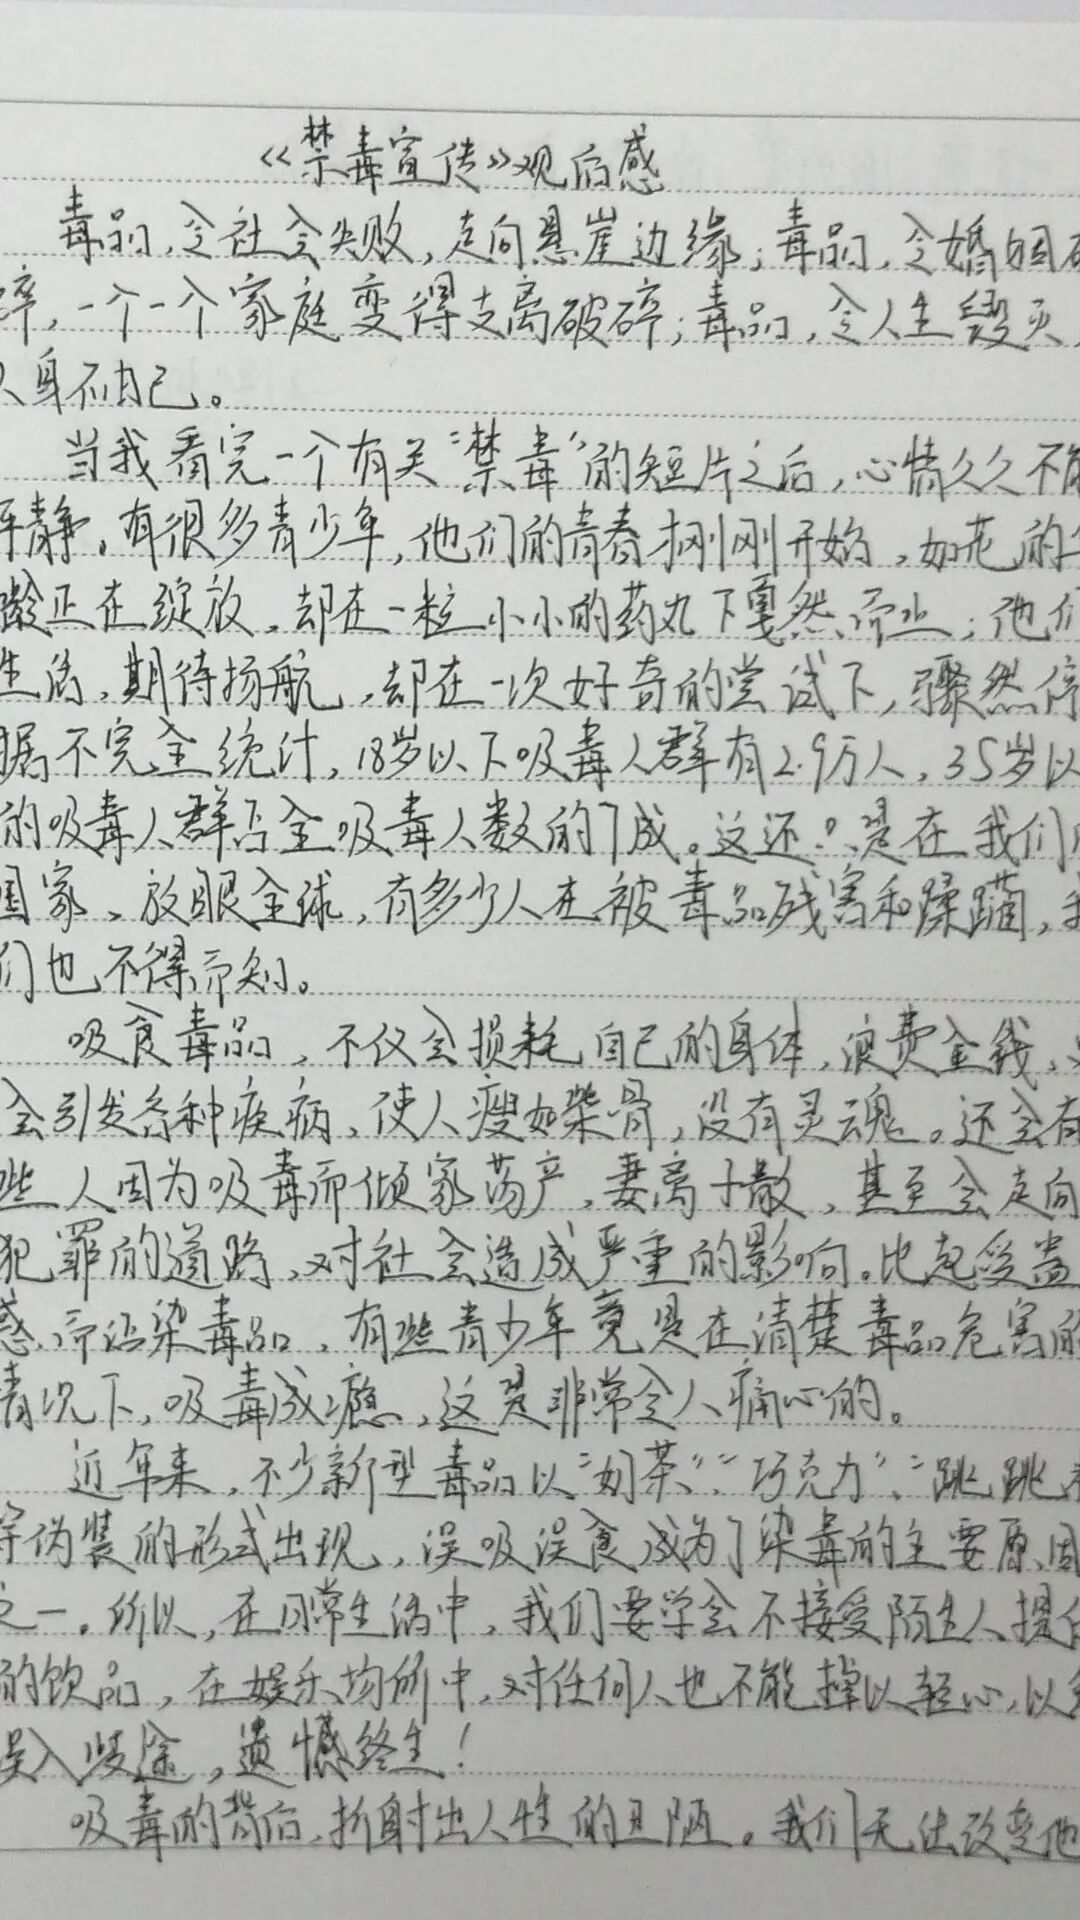 《禁毒宣传》观后感
毒品,令社会失败,走向悬崖边缘;毒品,令婚姻破
碎,一个一个家庭变得支离破碎;毒品,令人生毁灭,
人身不由己。
当我看完一个有关“禁毒”的短片之后,心情久久不能
平静。有很多青少年,他们的青春才刚刚开始,如花的年
龄正在绽放,却在一粒小小的药丸下戛然而止;他们
生活,期待扬航,却在一次好奇的尝试下,骤然停
据不完全统计,18岁以下吸毒人群有2.9万人,35岁以
的吸毒人群占全吸毒人数的7成。这还只是在我们
国家、放眼全球,有多少人在被毒品残害和蹂躏,我
们也不得而知。
吸食毒品,不仅会损耗自己的身体,浪费金钱,
会引发各种疾病,使人瘦如柴骨,没有灵魂。还会有
些人因为吸毒而倾家荡产,妻离子散,甚至会走向
犯罪的道路,对社会造成严重的影响。比起受蛊
惑而沾染毒品,有些青少年竟是在清楚毒品危害的
情况下,吸毒成瘾,这是非常令人痛心的。
近年来,不少新型毒品以“奶茶”“巧克力”、“跳跳
等伪装的形式出现,误吸误食成为了染毒的主要原因
之一。所以,在日常生活中,我们要学会不接受陌生人提供
的饮品,在娱乐场所中,对任何人也不能掉以轻心,以免
误入歧途,遗憾终生!
吸毒的背后,折射出人性的丑陋。我们无法改变他